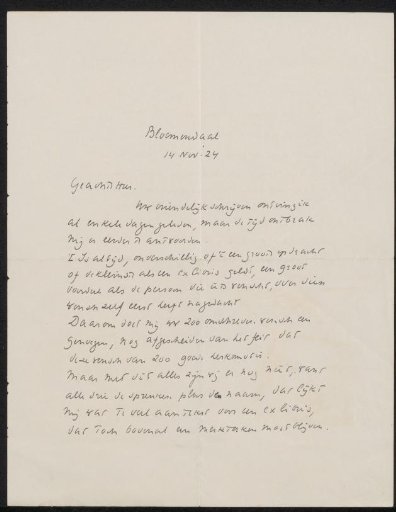 Bloemendaal
14 Nov. 24
Geachte Heer.
Uw vriendelijk schrijven ontving ik
al enkele dagen geleden, maar de tijd ontbrak
mij er eerder te antwoorden
't Is altijd, onverschillig of 't een groote opdracht
of de kleinste als een ex libris geldt, een groot
voordeel als de persoon die iets verwacht, over dien
wensch zelf eerst heeft nagedacht
Daarom doet mij uw zoo omschreven wensch een
genoegen, nog afgescheiden van het feit dat
deze wensch van zoo goede herkomst is.
Maar met dit alles zijn wij er nog niet, want
alle drie de spreuken plus den naam, dat lijkt
mij wat te veel aan tekst voor een ex libris,
dat toch bovenal een merkteeken moet blijven.